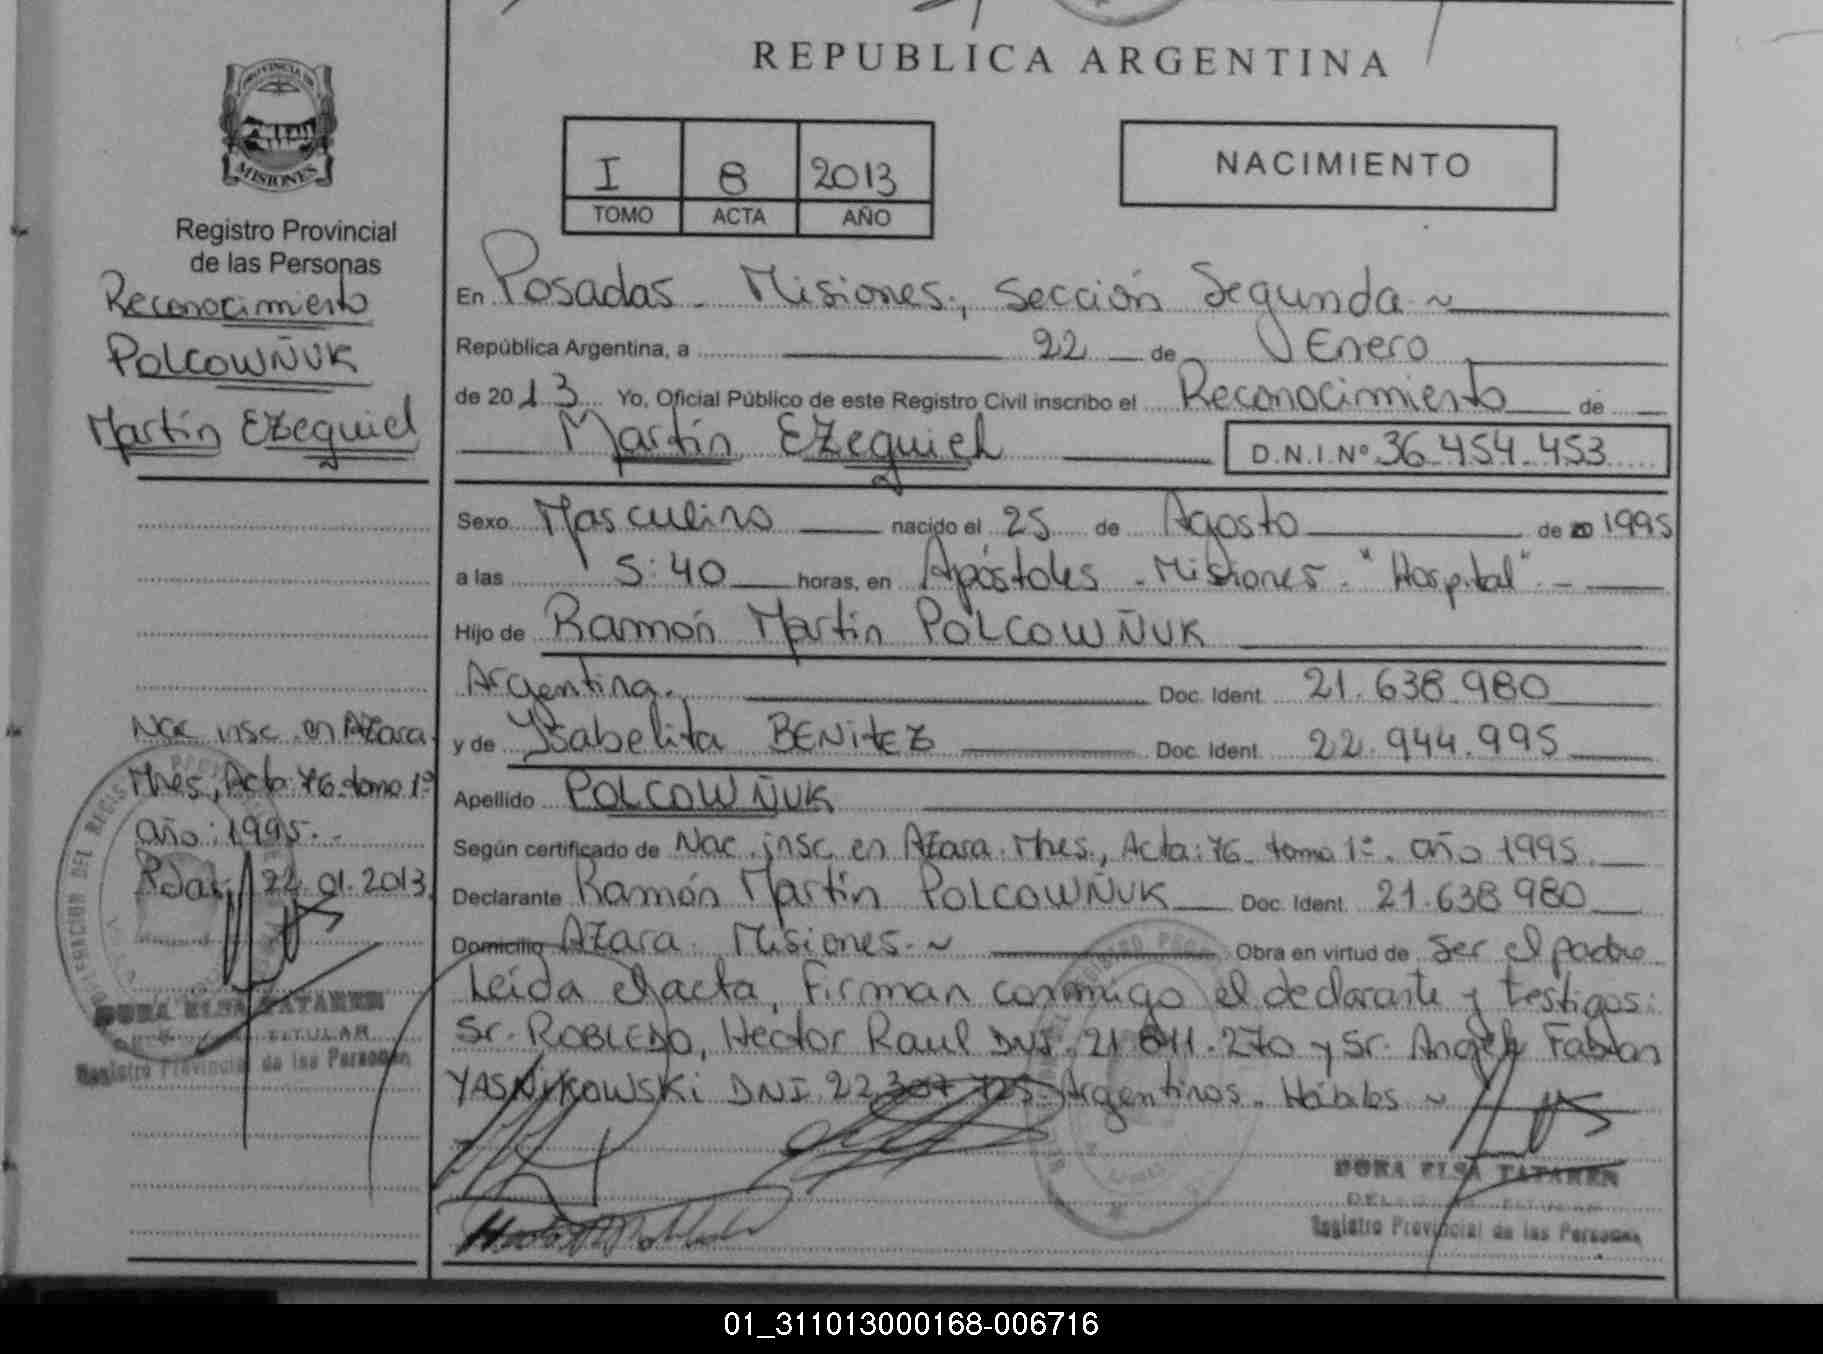 REPUBLICA ARGENTINA
PROVINCIA DE
MISIONES
Registro Provincial
de las Personas
Reconocimiento
POLCOWÑUK
Martín Ezequiel
Nac insc. en Azara.
Mnes, Acta: 76. tomo 1º
año: 1995.-
Pdas, 22.01.2013
DORA ELSA TATAREN
TITULAR
Registro Provincial de las Personas
I 8 2013
TOMO ACTA AÑO
NACIMIENTO
En Posadas - Misiones, Sección Segunda ~
República Argentina, a 22 de Enero
de 2013 Yo, Oficial Público de este Registro Civil inscribo el Reconocimiento de
Martín Ezequiel D.N.I.Nº 36.454.453
Sexo Masculino nacido el 25 de Agosto de 20 1995
a las 5:40 horas, en Apóstoles - Misiones - "Hospital" -
Hijo de Ramón Martín POLCOWÑUK
Argentina. Doc. Ident. 21.638.980
y de Ysabelita BENITEZ Doc. Ident. 22.944.995
Apellido POLCOWÑUK
Según certificado de Nac. insc. en Azara. Mnes., Acta: 76. tomo 1º. año 1995.
Declarante Ramón Martín POLCOWÑUK Doc. Ident. 21.638.980
Domicilio Azara. Misiones. ~ Obra en virtud de ser el padre
Leída el acta, firman conmigo el declarante y testigos:
Sr. ROBLEDO, Hector Raul DNI. 21.841.270 y Sr. Angel Fabian
YASNIKOWSKI DNI 22.307.725. Argentinos. Hábiles ~
DORA ELSA TATAREN
Registro Provincial de las Personas
01_311013000168-006716